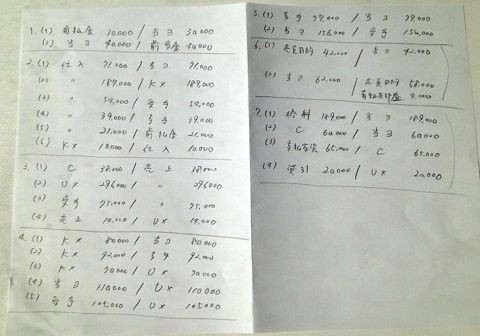 1. (1) 前払金 30,000 / 当ヨ 30,000
(2) 当ヨ 40,000 / 前受金 40,000
2. (1) 仕入 71,000 / 当ヨ 71,000
(2) 〃 187,000 / Kx 187,000
(3) 〃 54,000 / 受手 54,000
(4) 〃 39,000 / 支手 39,000
(5) 〃 21,000 / 前払金 21,000
(6) Kx 10,000 / 仕入 10,000
3. (1) C 38,000 / 売上 38,000
(2) Ux 296000 / 〃 296000
(3) 受手 75,000 / 〃 75,000
(4) 売上 14,000 / Ux 14,000
4. (1) Kx 80,000 / 当ヨ 80,000
(2) Kx 92,000 / 支手 92,000
(3) Kx 70,000 / Ux 70,000
(4) 当ヨ 110,000 / Ux 110,000
(5) 受手 105,000 / Ux 105,000
5. (1) 支手 77,000 / 当ヨ 77,000
(2) 当ヨ 156,000 / 受手 156,000
6. (1) 売買目的 42,000 / 当ヨ 42,000
(2) 当ヨ 62,000 / 売買目的 58,000
4,000
7. (1) 給料 189,000 / 当ヨ 189,000
(2) C 60,000 / 当ヨ 60,000
(3) 支払家賃 65,000 / C 65,000
(4) 貸引 20,000 / Ux 20,000